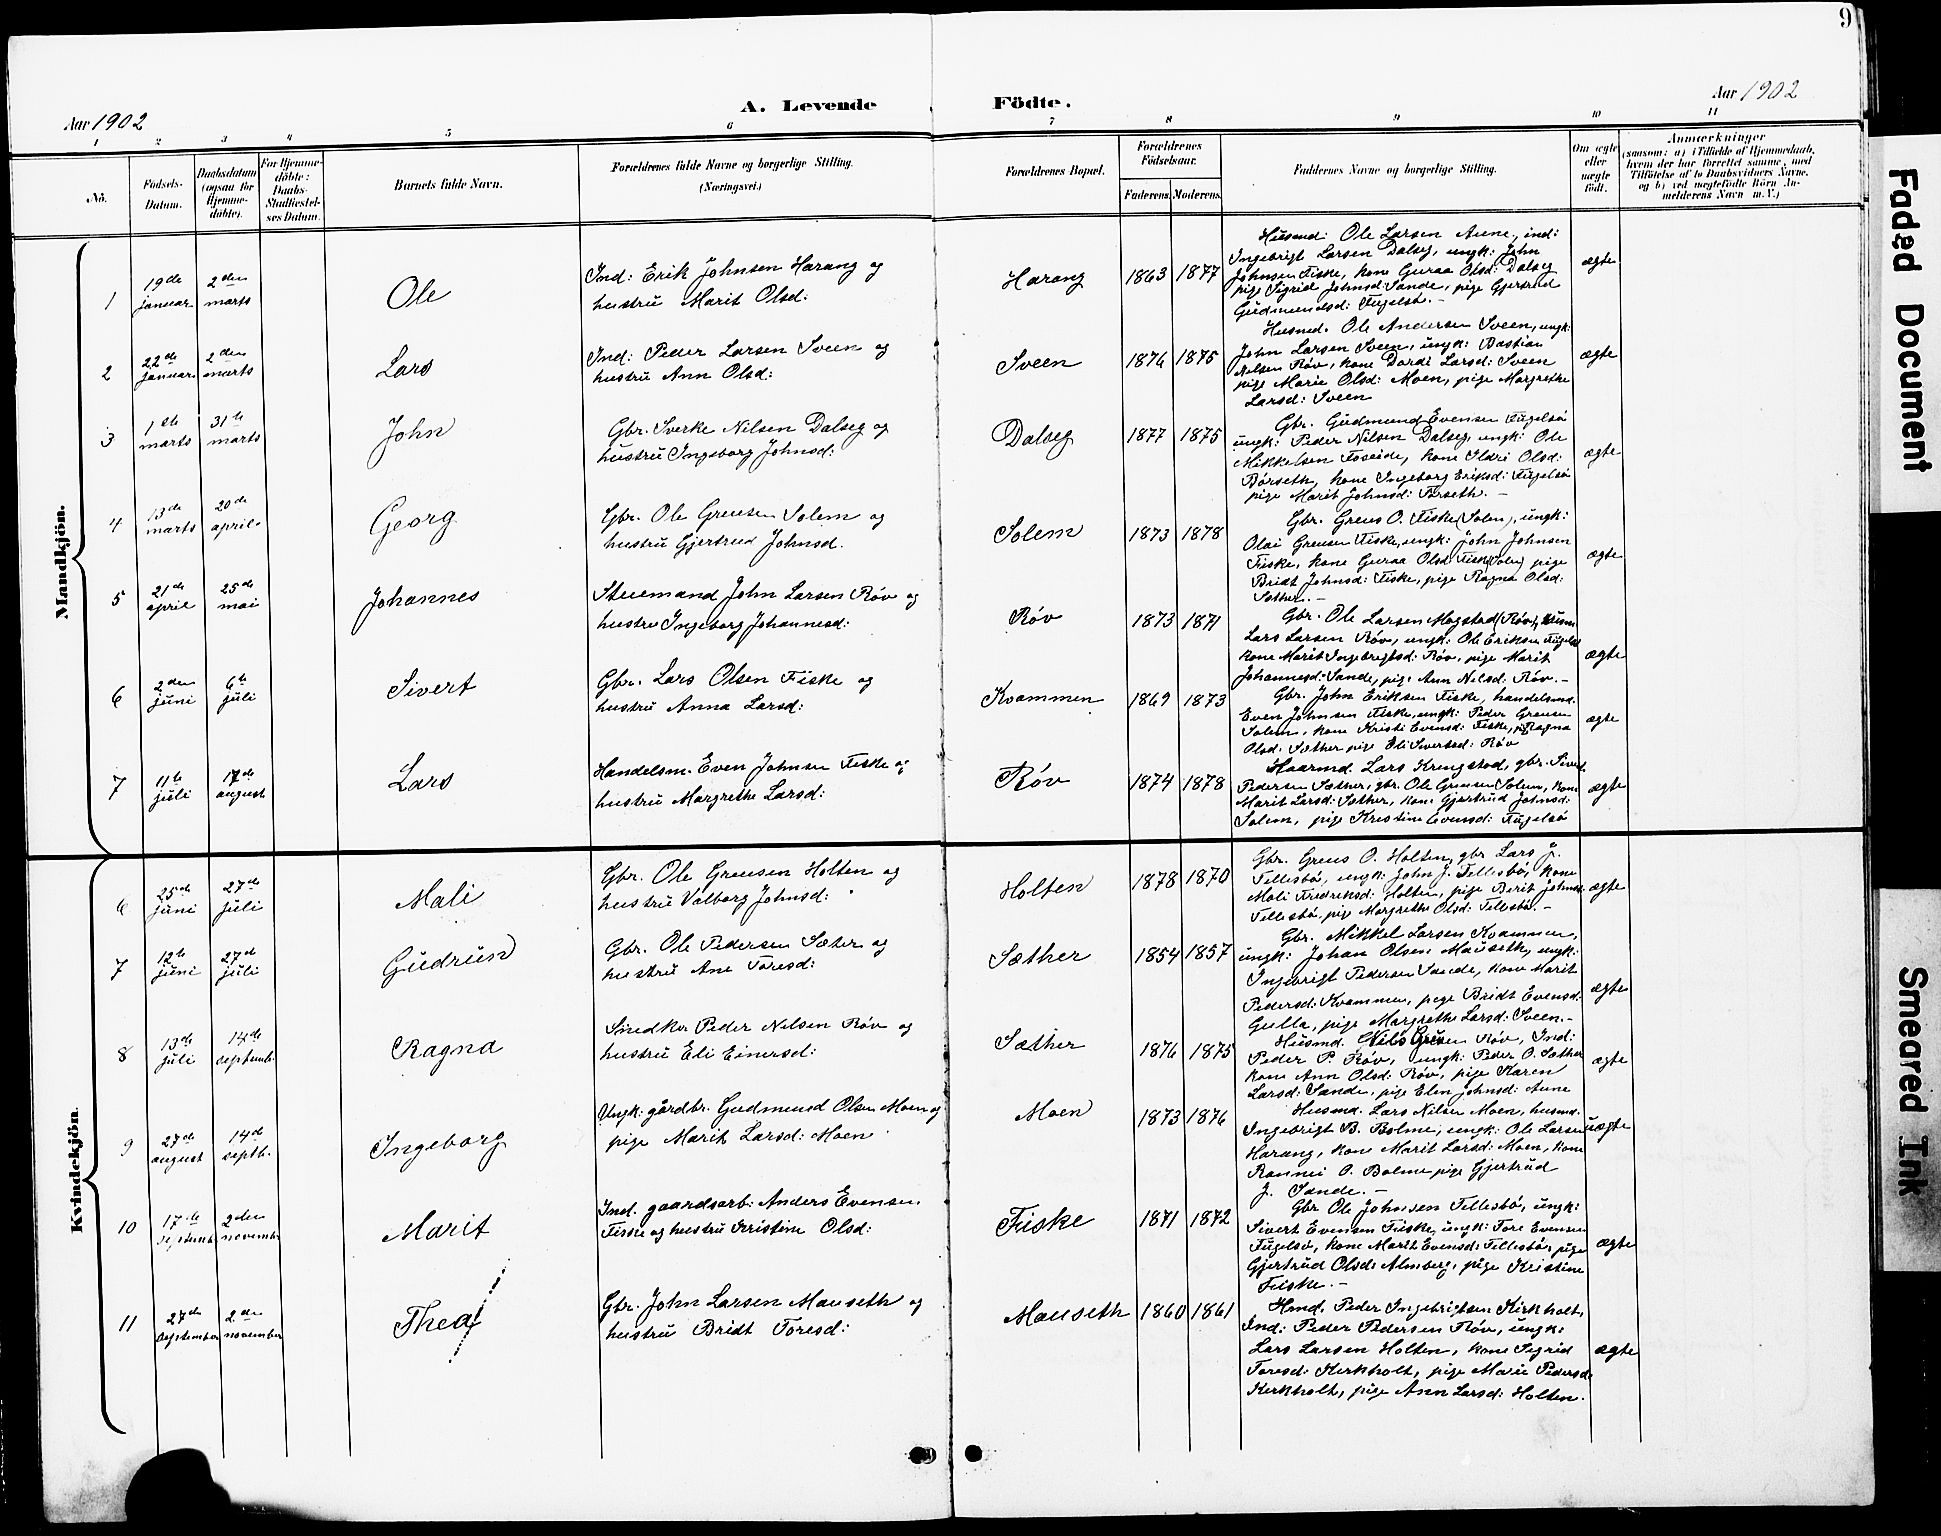 9
Aar 1902
A. Levende Födte.
Aar 1902
1 2 3 4 5 6 7 8 9 10 11
No.
Födsels-Datum.
Daabsdatum (ogsaa for Hjemme-döbte).
For Hjemme-döbte: Daabs-Stadfæstel-ses Datum.
Barnets fulde Navn.
Forældrenes fulde Navne og borgerlige Stilling. (Næringsvei.)
Forældrenes Bopæl.
Forældrenes Födselsaar.
Faderens. Moderens.
Faddernes Navne og borgerlige Stilling.
Om ægte eller uægte födt.
Anmærkninger
(saasom: a) i Tilfælde af Hjemmedaab, hvem der har forrettet samme, med Tilföielse af to Daabsvidners Navne, og b) ved uægtefödte Börn An-melderens Navn m. V.)
Mandkjön.
1
19de januar
2den marts
Ole
Ind: Erik Johnsen Harang og
hustru Marit Olsd:
Harang
1863 1877
Husmd: Ole Larsen Aune, ind:
Ingebrigt Larsen Dalseg, ungk: John
Johnsen Fiske, kone Guraa Olsd: Dalseg
pige Sigrid Johnsd: Sande, pige Gjertrud
Gudmundsd: Fugelsö. –
ægte
2
22de januar
2den marts
Lars
Ind: Peder Larsen Sveen og
hustru Ann Olsd:
Sveen
1876 1875
Husmd. Ole Andersen Sveen, ungk:
John Larsen Sveen, ungk: Bastian
Nilsen Röv, kone Dordi Larsd: Sveen
pige Marie Olsd: Moen, pige Margrethe
Larsd: Sveen
ægte
3
1ste marts
31te marts
John
Gbr. Sverke Nilsen Dalseg og
hustru Ingeborg Johnsd:
Dalseg
1877 1875
Gbr. Gudmund Evensen Fugelsö
ungk: Peder Nilsen Dalseg, ungk: Ole
Mikkelsen Foseide, kone Ildri Olsd:
Börseth, kone Ingeborg Eriksd: Fugelsö
pige Marit Johnsd: –
ægte
4
13de marts
20de april
Georg
Gbr. Ole Greusen Solem og
hustru Gjertrud Johnsd.
Solem
1873 1878
Gbr. Greus O. Fiske (Solem), ungk:
Olai Greusen Fiske, ungk: John Johnsen
Fiske, kone Guraa Olsd: Fiske (Solem) pige
Bridt Johnsd: Fiske, pige Ragna Olsd:
Sæther. –
ægte
5
21de april
25de mai
Johannes
Stuemand John Larsen Röv og
hustru Ingeborg Johannesd:
Röv
1873 1871
Gbr. Ole Larsen Mogstad (Röv), Husm
Lars Larsen Röv, ungk: Ole Eriksen Fugelsö
kone Marit Ingebrigtsd: Röv, pige Marit
Johannesd: Sande, pige Ann Nilsd: Röv. –
ægte
6
2den juni
6te juli
Sivert
Gbr. Lars Olsen Fiske og
hustru Anna Larsd:
Kvammen
1869 1873
Gbr. John Eriksen Fiske, handelsmd.
Even Johnsen Fiske, ungk: Peder Greusen
Solem, kone Kristi Evensd: Fiske, pige Ragna
Olsd: Sæther pige Eli Sivertsd: Röv
ægte
7
11te juli
17de august
Lars
Handelsm. Even Johnsen Fiske og
hustru Margrethe Larsd:
Röv
1874 1878
Gaarmd. Lars Krengstad, gbr. Sivert
Pedersen Sæther, gbr. Ole Greusen Solem, kone
Marit Larsd: Sæther, kone Gjertrud Johnsd:
Solem, pige Kristine Evensd: Fugelsö
ægte
Kvindekjön.
6
25de juni
27de juli
Mali
Gbr. Ole Greusen Holten og
hustru Valborg Johnsd:
Holten
1878 1870
Gbr. Greus O. Holten, gbr Lars J.
Tellesbö, ungk: John J. Tellesbö, kone
Mali Fredriksd: Holten, pige Berit Johnsd.
Tellesbö, pige Margrethe Olsd: Tellesbö. –
ægte
7
12te juni
27de juli
Gudrun
Gbr. Ole Pedersen Sæter og
hustru Ane Toresd:
Sæther
1854 1857
Gbr. Mikkel Larsen Kvammen,
ungk: Johan Olsen Mauseth, ungk:
Ingebrigt Pedersen Sande, kone Marit
Pedersd: Kvammen, pige Bridt Evensd:
Gulla, pige Margrethe Larsd: Sveen. –
ægte
8
13de juli
14de septembr
Ragna
Snedker Peder Nilsen Röv og
hustru Eli Einersd:
Sæther
1876 1875
Husmd. Nils Röv, Ind:
Peder P. Röv, ungk: Peder O. Sæther
kone Ann Olsd: Röv, pige Karen
Larsd: Sande, pige Elen Johnsd: Aune
ægte
9
27de august
14de septb.
Ingeborg
Ungk: gårdbr. Gudmund Olsen Moen og
pige Marit Larsd: Moen
Moen
1873 1876
Husmd. Lars Nilsen Moen, husmd.
Ingebrigt B. Bolme, ungk: Ole Larsen
Harang, kone Marit Larsd: Moen, kone
Rannei O. Bolme pige Gjertrud
J. Sande. –
uægte
10
17de septembr
2den novembr
Marit
Ind. gaardsarb: Anders Evensen
Fiske og hustru Kristine Olsd:
Fiske
1871 1872
Gbr Ole Johnsen Tellesbö, ungk:
Sivert Evensen Fiske, ungk: Tore Evensen
Fugelsö, kone Marit Evensd: Tellesbö, pige
Gjertrud Olsd: Almberg, pige Kristine
Fiske. –
ægte
11
27de september
2den november
Thea
Gbr. John Larsen Mauseth og
hustru Bridt Toresd:
Mauseth
1860 1861
Hmd. Peder Ingebrigtsen Kirkholt,
Ind: Peder Pedersen Röv, ungk:
Lars Larsen Holten, kone Sigrid
Toresd: Kirkholt, pige Marie Pedersd.
Kirkholt, pige Ann Larsd: Holten.
ægte
Faded Document
Smeared Ink